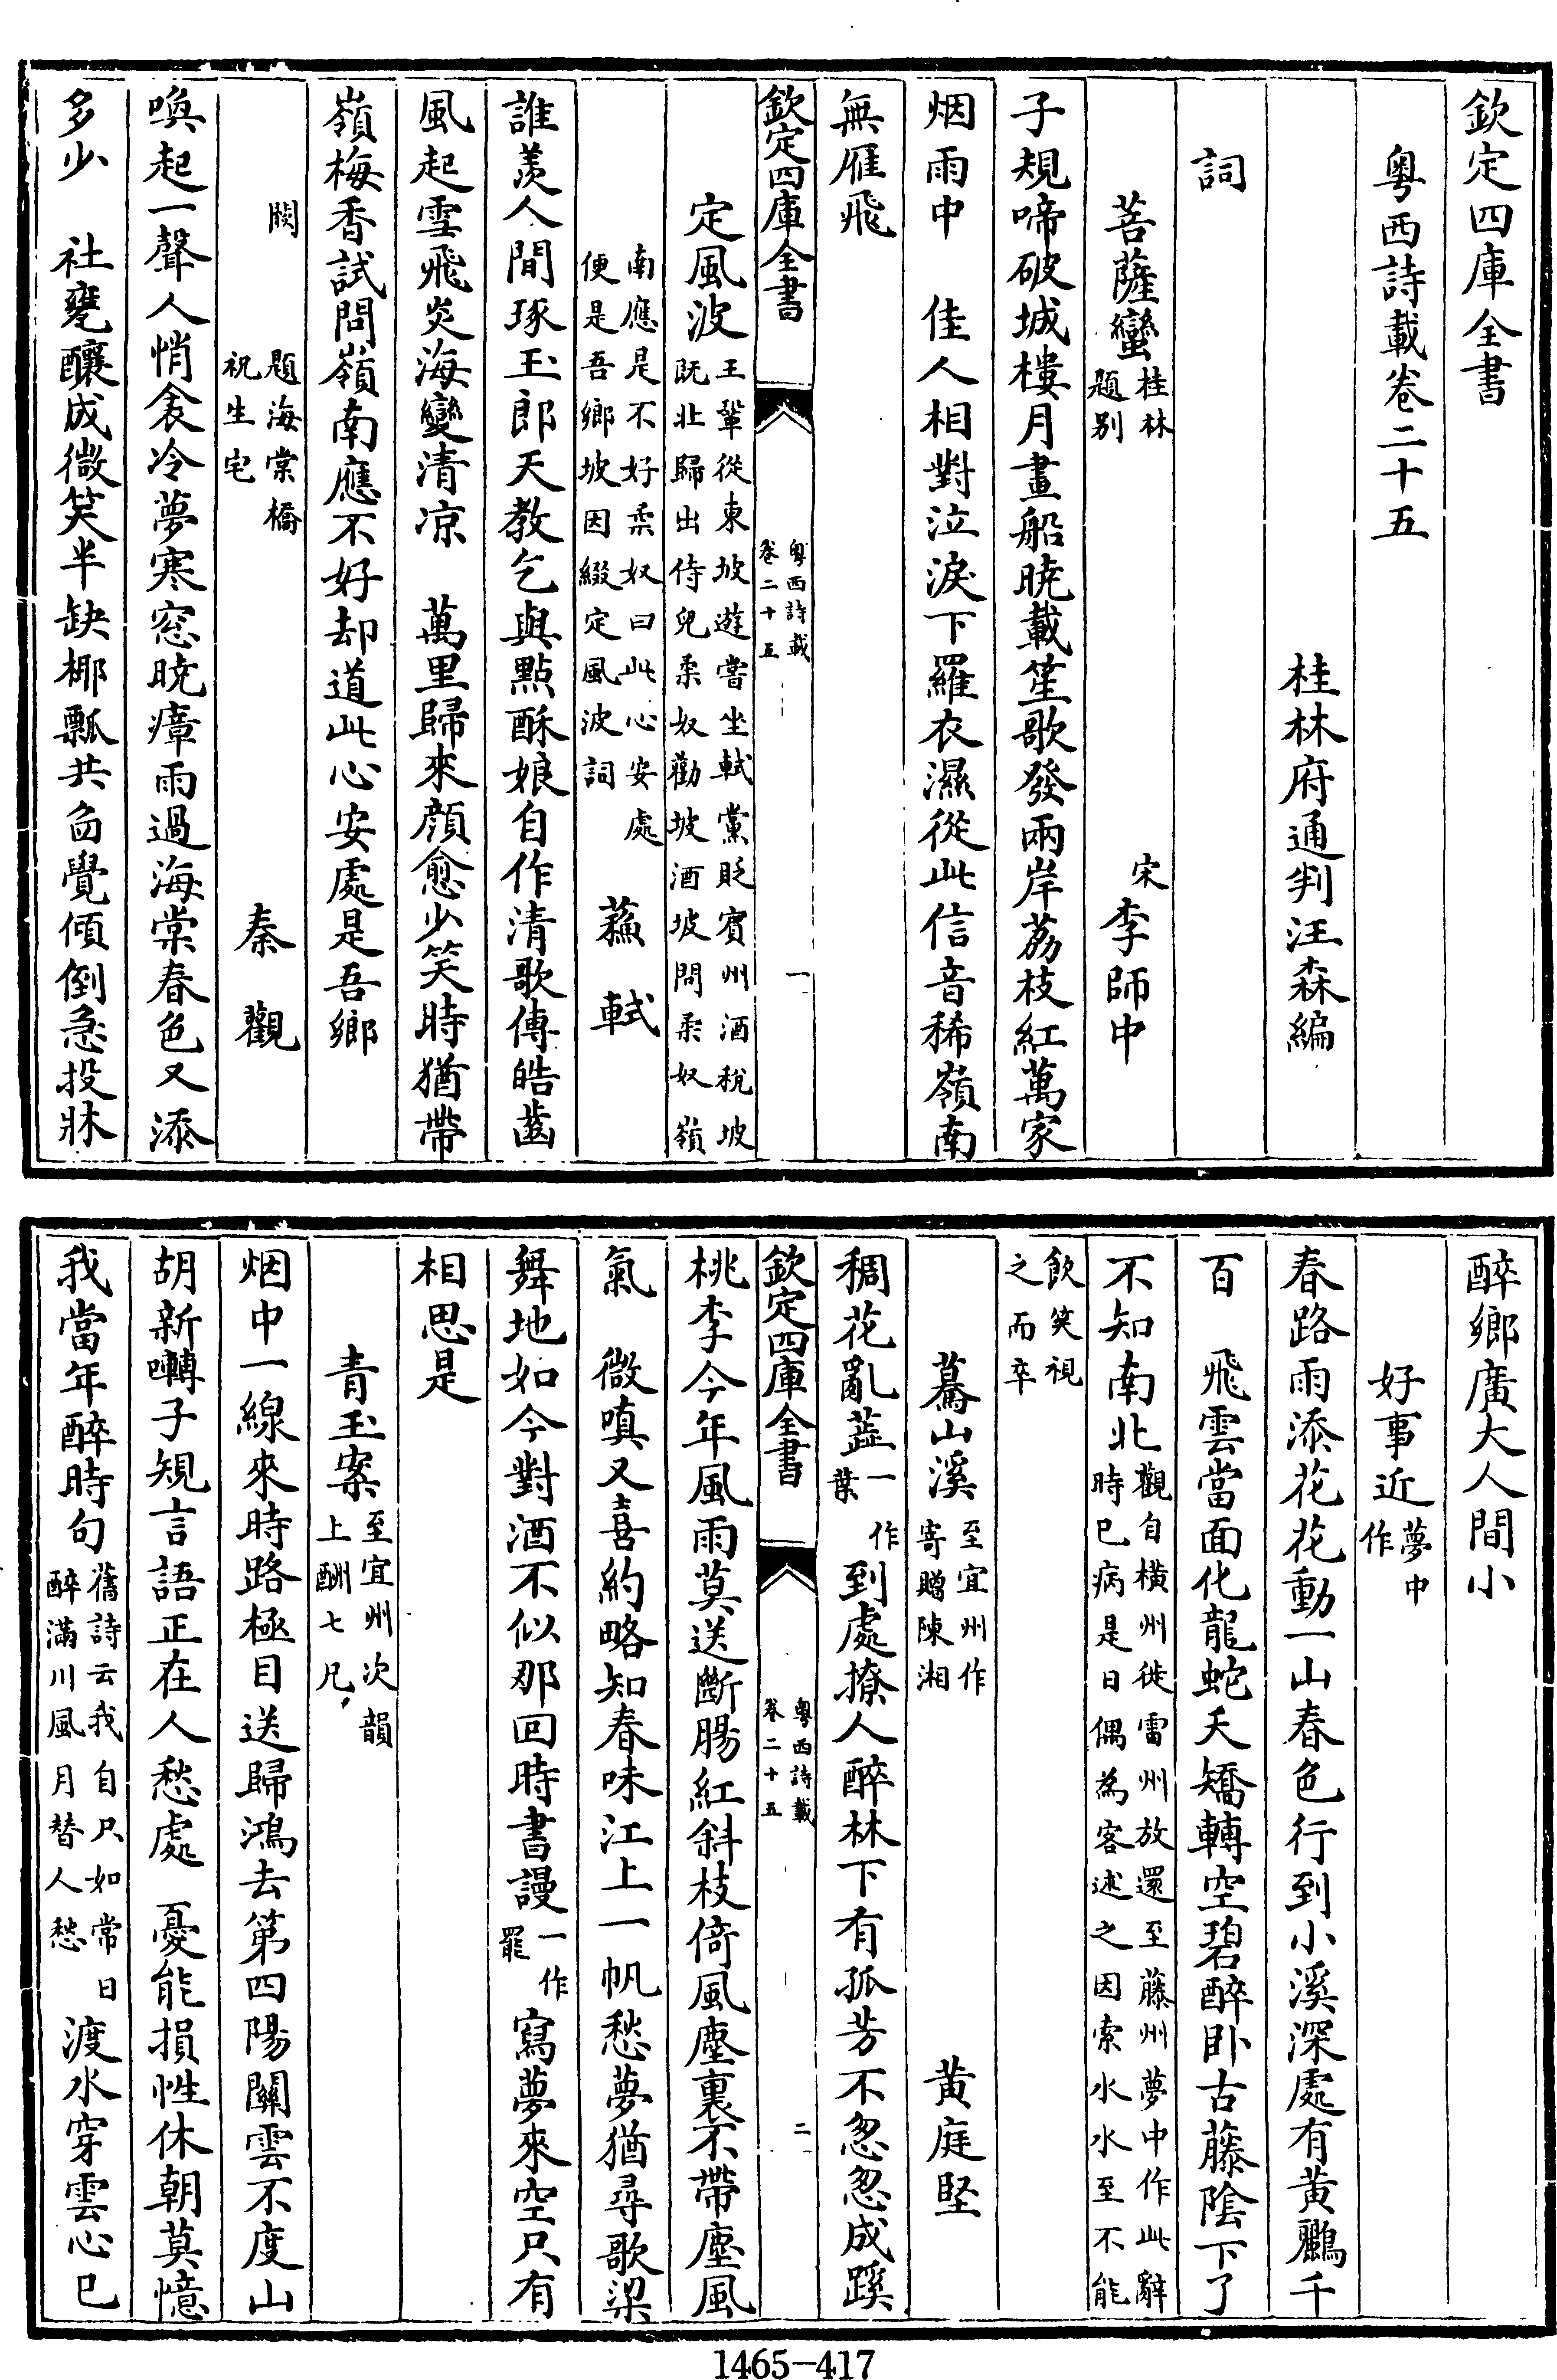 欽定四庫全書
粤西詩載卷二十五
桂林府通判汪森編
詞
菩薩蠻桂林
題别
宋
李師中
子規啼破城樓月畫船曉載笙歌發兩岸荔枝紅萬家
烟雨中　佳人相對泣淚下羅衣濕從此信音稀嶺南
無雁飛
欽定四庫全書
粤西詩載
卷二十五
一
定風波王鞏從東坡遊嘗坐軾黨貶賓州酒稅坡
既北歸出侍兒柔奴勸坡酒坡問柔奴嶺
南應是不好柔奴曰此心安處
便是吾鄉坡因綴定風波詞
蘇軾
誰羨人間琢玉郎天教乞與點酥娘自作清歌傳皓齒
風起雪飛炎海變清凉　萬里歸來顔愈少笑時猶帶
嶺梅香試問嶺南應不好却道此心安處是吾鄉
闕
題海棠橋
祝生宅
秦觀
喚起一聲人悄衾冷夢寒窓曉瘴雨過海棠春色又添
多少　社甕釀成微笑半缺椰瓢共舀覺傾倒急投牀
醉鄉廣大人間小
好事近夢中
作
春路雨添花花動一山春色行到小溪深處有黄鸝千
百　飛雲當面化龍蛇夭矯轉空碧醉卧古藤陰下了
不知南北觀自橫州徙雷州放還至藤州夢中作此辭
時已病是日偶為客述之因索水水至不能
飲笑視
之而卒
驀山溪至宜州作
寄贈陳湘
黄庭堅
稠花亂蕋一作
葉到處撩人醉林下有孤芳不怱怱成蹊
桃李今年風雨莫送斷腸紅斜枝倚風塵裏不帶塵風
欽定四庫全書
粤西詩載
卷二十五
二
氣　微嗔又喜約略知春味江上一帆愁夢猶尋歌梁
舞地如今對酒不似那回時書謾一作
罷寫夢來空只有
相思是
青玉案至宜州次韻
上酬七兄
烟中一線來時路極目送歸鴻去第四陽關雲不度山
胡新囀子規言語正在人愁處　憂能損性休朝莫憶
我當年醉時句舊詩云我自只如常日
醉滿川風月替人愁渡水穿雲心已
1465-417